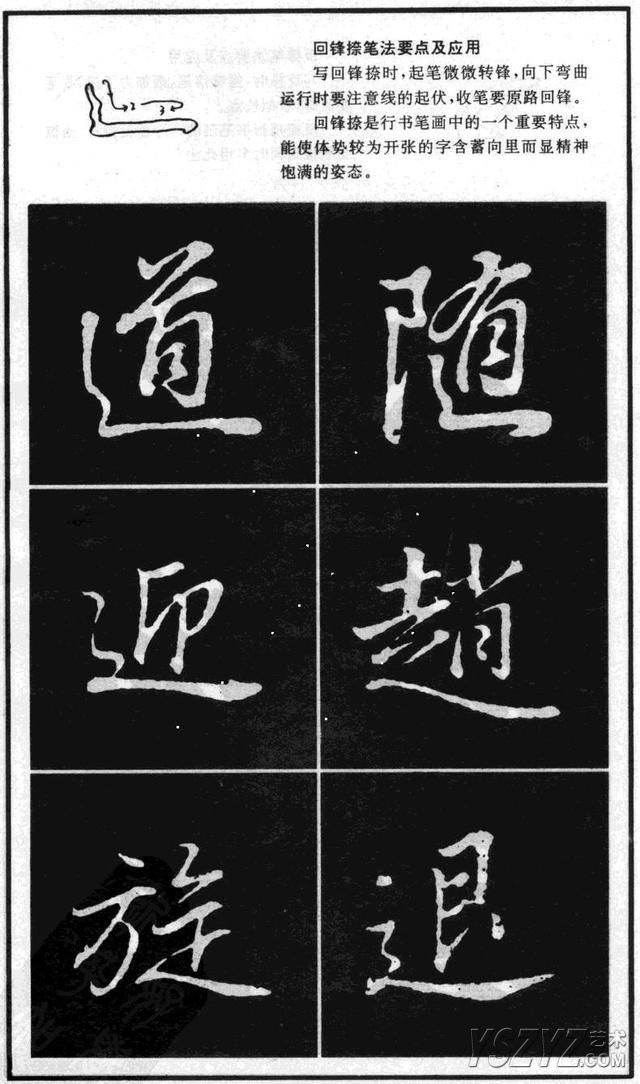 回锋捺笔法要点及应用
写回锋捺时，起笔微微转锋，向下弯曲
运行时要注意线的起伏，收笔要原路回锋。
回锋捺是行书笔画中的一个重要特点，
能使体势较为开张的字含蓄向里而显精神
饱满的姿态。
1
2
3
道 随
迎 趙
旋 退
YSZYZ艺术
.COM